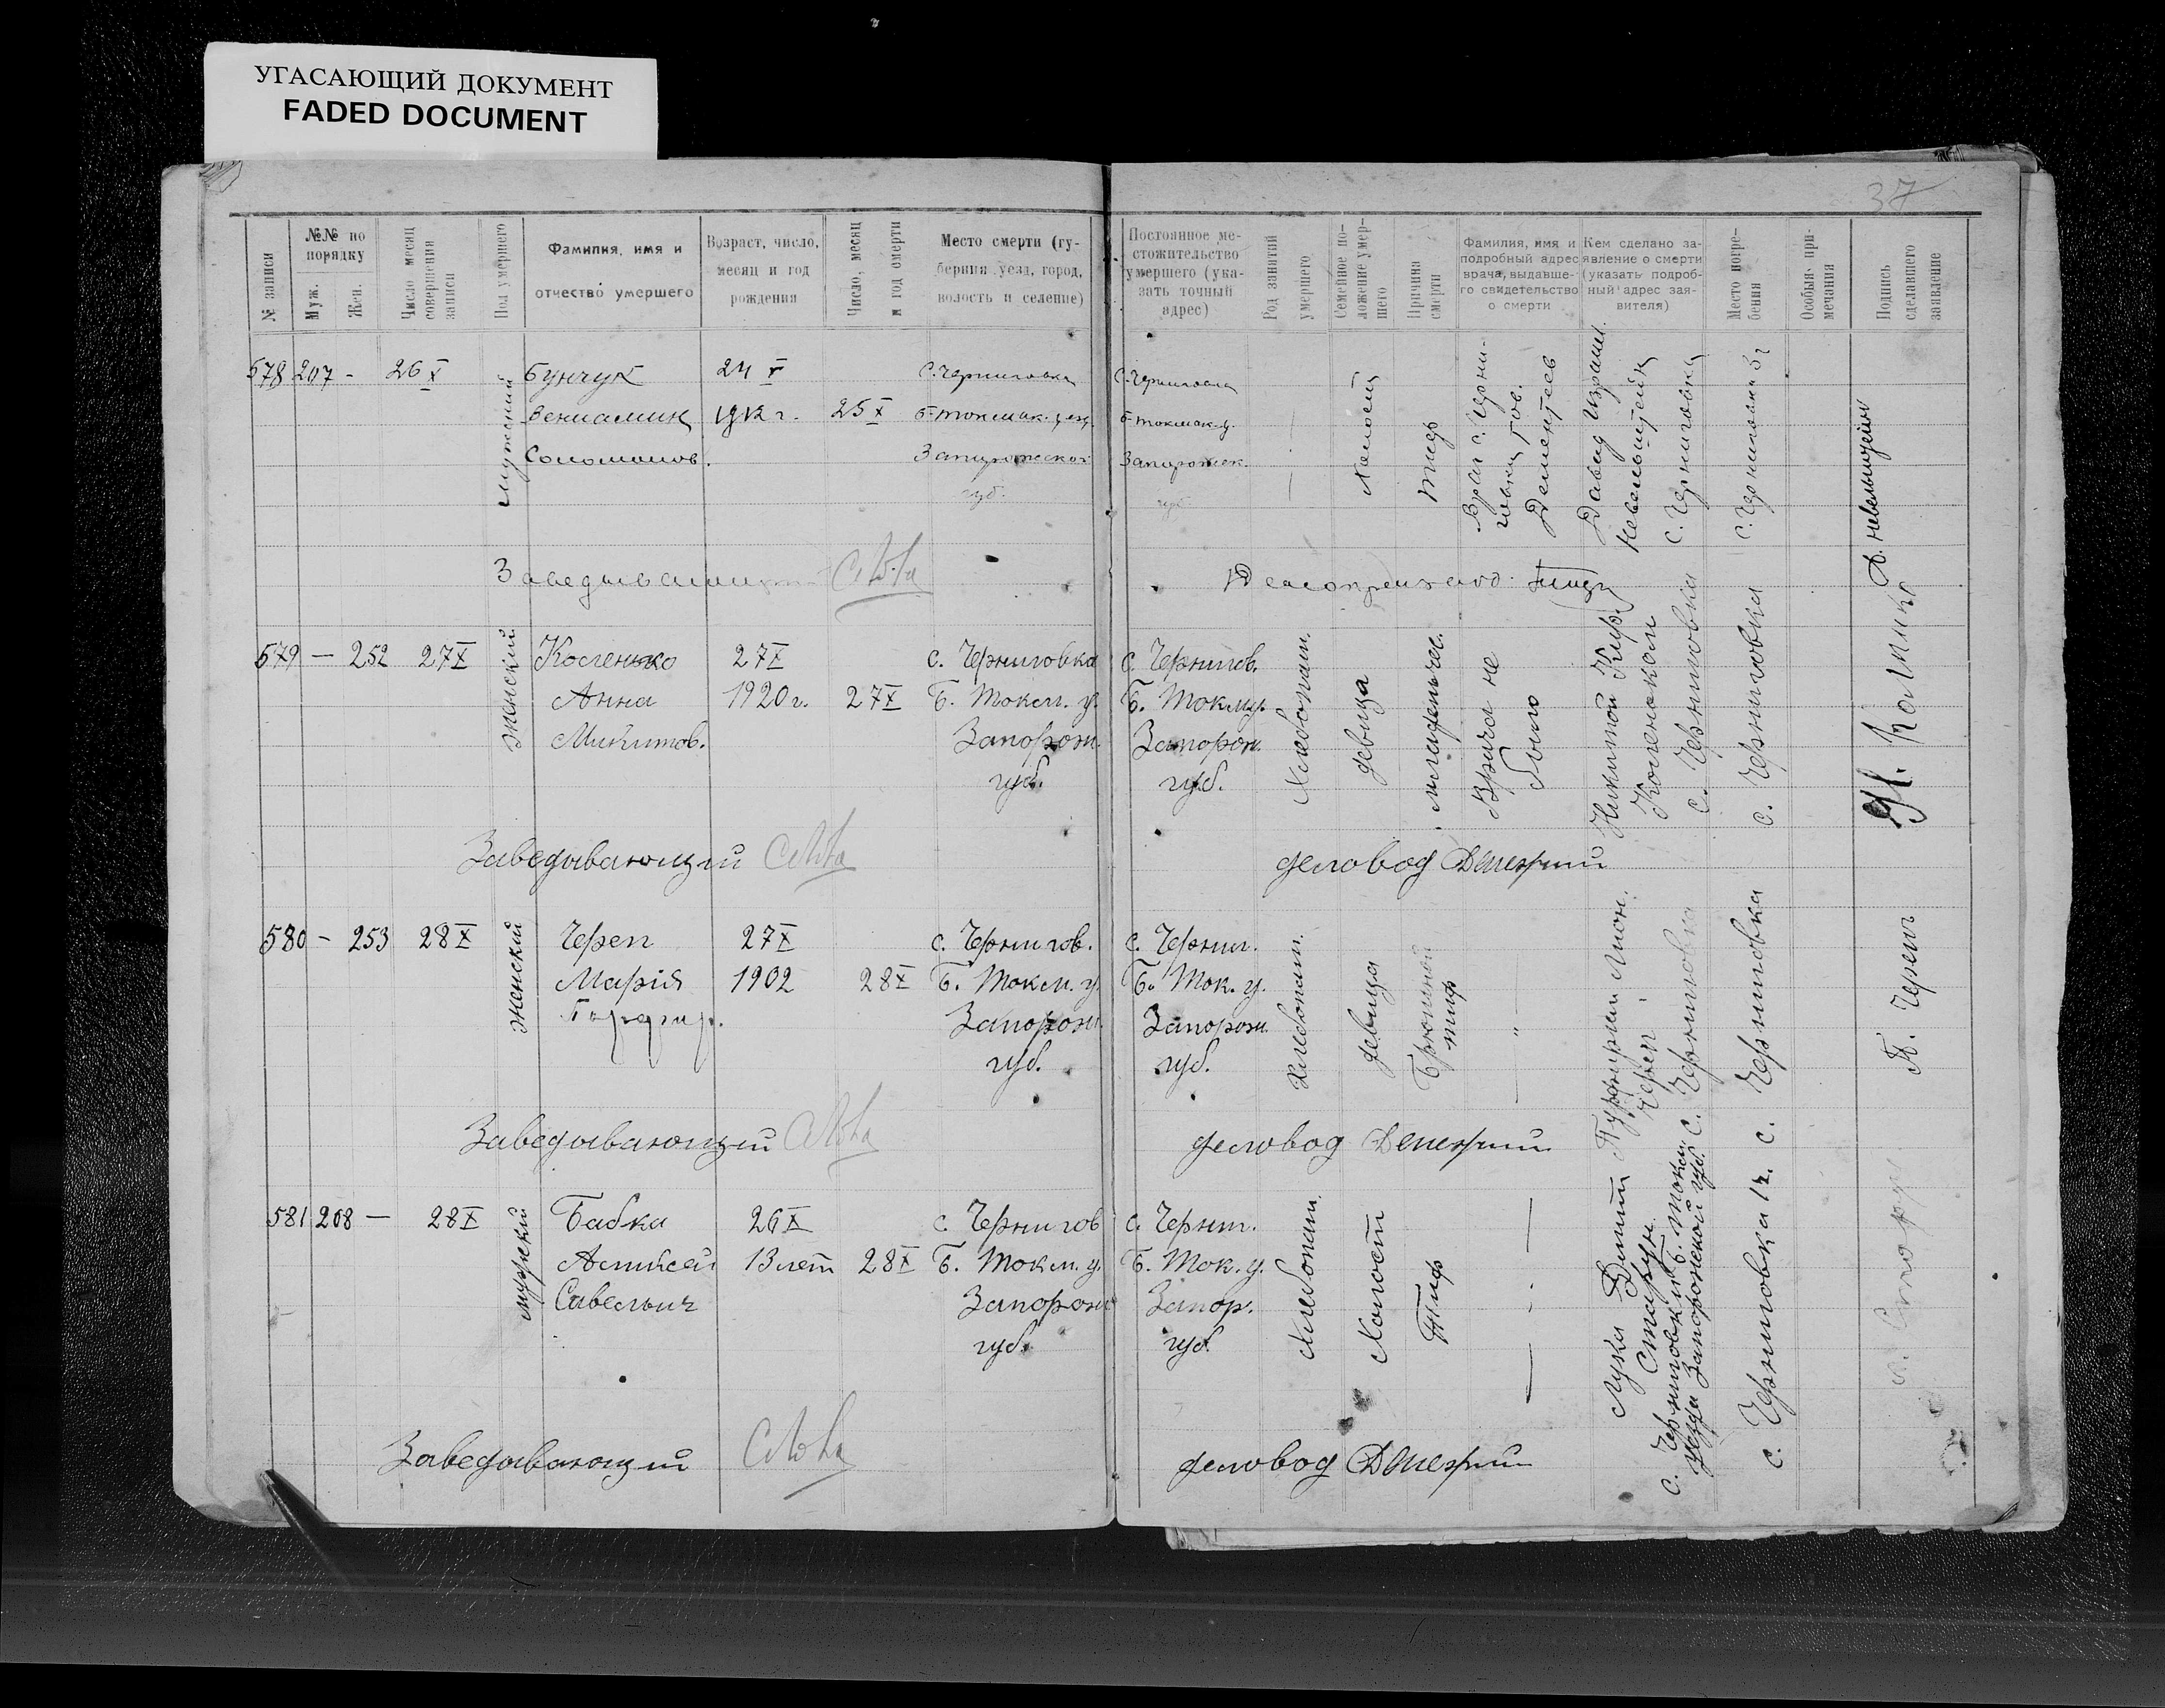 УГАСАЮЩИЙ ДОКУМЕНТ
FADED DOCUMENT
37
№ записи
№№ по порядку
Муж.
Жен.
Число месяц совершения записи
Пол умершего
Фамилия, имя и отчество умершего
Возраст, число, месяц и год рождения
Число, месяц и год смерти
Место смерти (губерния, уезд, город, волость и селение)
Постоянное местожительство умершего (указать точный адрес)
Род занятий умершего
Семейное положение умершего
Причина смерти
Фамилия, имя и подробный адрес врача, выдавшего свидетельство о смерти
Кем сделано заявление о смерти (указать подробный адрес заявителя)
Место погребения
Особыя примечания
Подпись сделавшего заявление
578 207 - 26 X
мужский
Бунчук
Вениамин
Соломонов.
24 X
1912 г.
25 X
с. Черниговка
Б-Токмак. уез.
Запорожской
губ.
с. Черниговка
Б-Токмак. у.
Запорожск.
губ.
Холост
Тиф
Врач с. Черниговки
Дементьев
Давид
Невельштейн
с. Черниговка
с. Черниговка
Д. Невельштейн
Заведывающий
579 — 252 27 X
женский
Косгенько
Анна
Микитов.
27 X
1920 г.
27 X
с. Черниговка
Б. Токм. у.
Запорож.
губ.
с. Чернигов.
Б. Ток. у.
Запорож.
губ.
Хлебопаш.
девица
младенчес.
Врача не
было
Никитой
с. Черниговка
с. Черниговка
Заведывающий
деловод
580 - 253 28 X
женский
Череп
Марія
27 X
1902
28 X
с. Чернигов.
Б. Токм. у.
Запорож.
губ.
с. Черниг.
Б. Ток. у.
Запорож.
губ.
Хлебопаш.
девица
Брюшной
тиф
"
Череп
с. Черниговка
с. Черниговка
П. Череп
Заведывающий
деловод
581 208 — 28 X
мужский
Бабка
Алексей
Савельич
26 X
13 лет
28 X
с. Чернигов
Б. Токм. у.
Запорож
губ.
с. Черниг.
Б. Ток. у.
Запор.
губ.
Хлебопаш.
Холост
Тиф
Лука
Старун
с. Черниговки Б. Токм.
уезда Запорожской губ.
с. Черниговка
Заведывающий
деловод